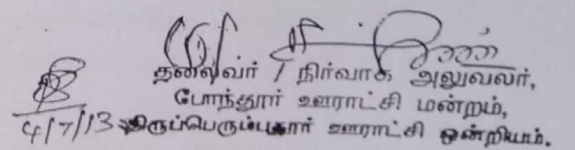 தலைவர் / நிர்வாக அலுவலர்,
போந்தூர் ஊராட்சி மன்றம்,
4/7/13 திருப்பெரும்புதூர் ஊராட்சி ஒன்றியம்.